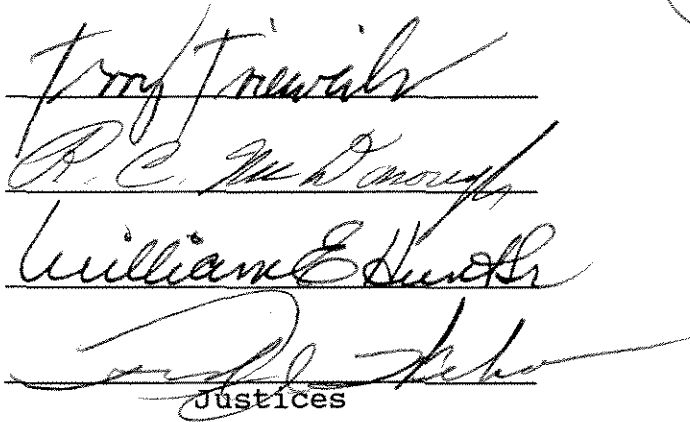 Terry Trieweiler
R. C. McDonough
William E Hunt Sr
Justices